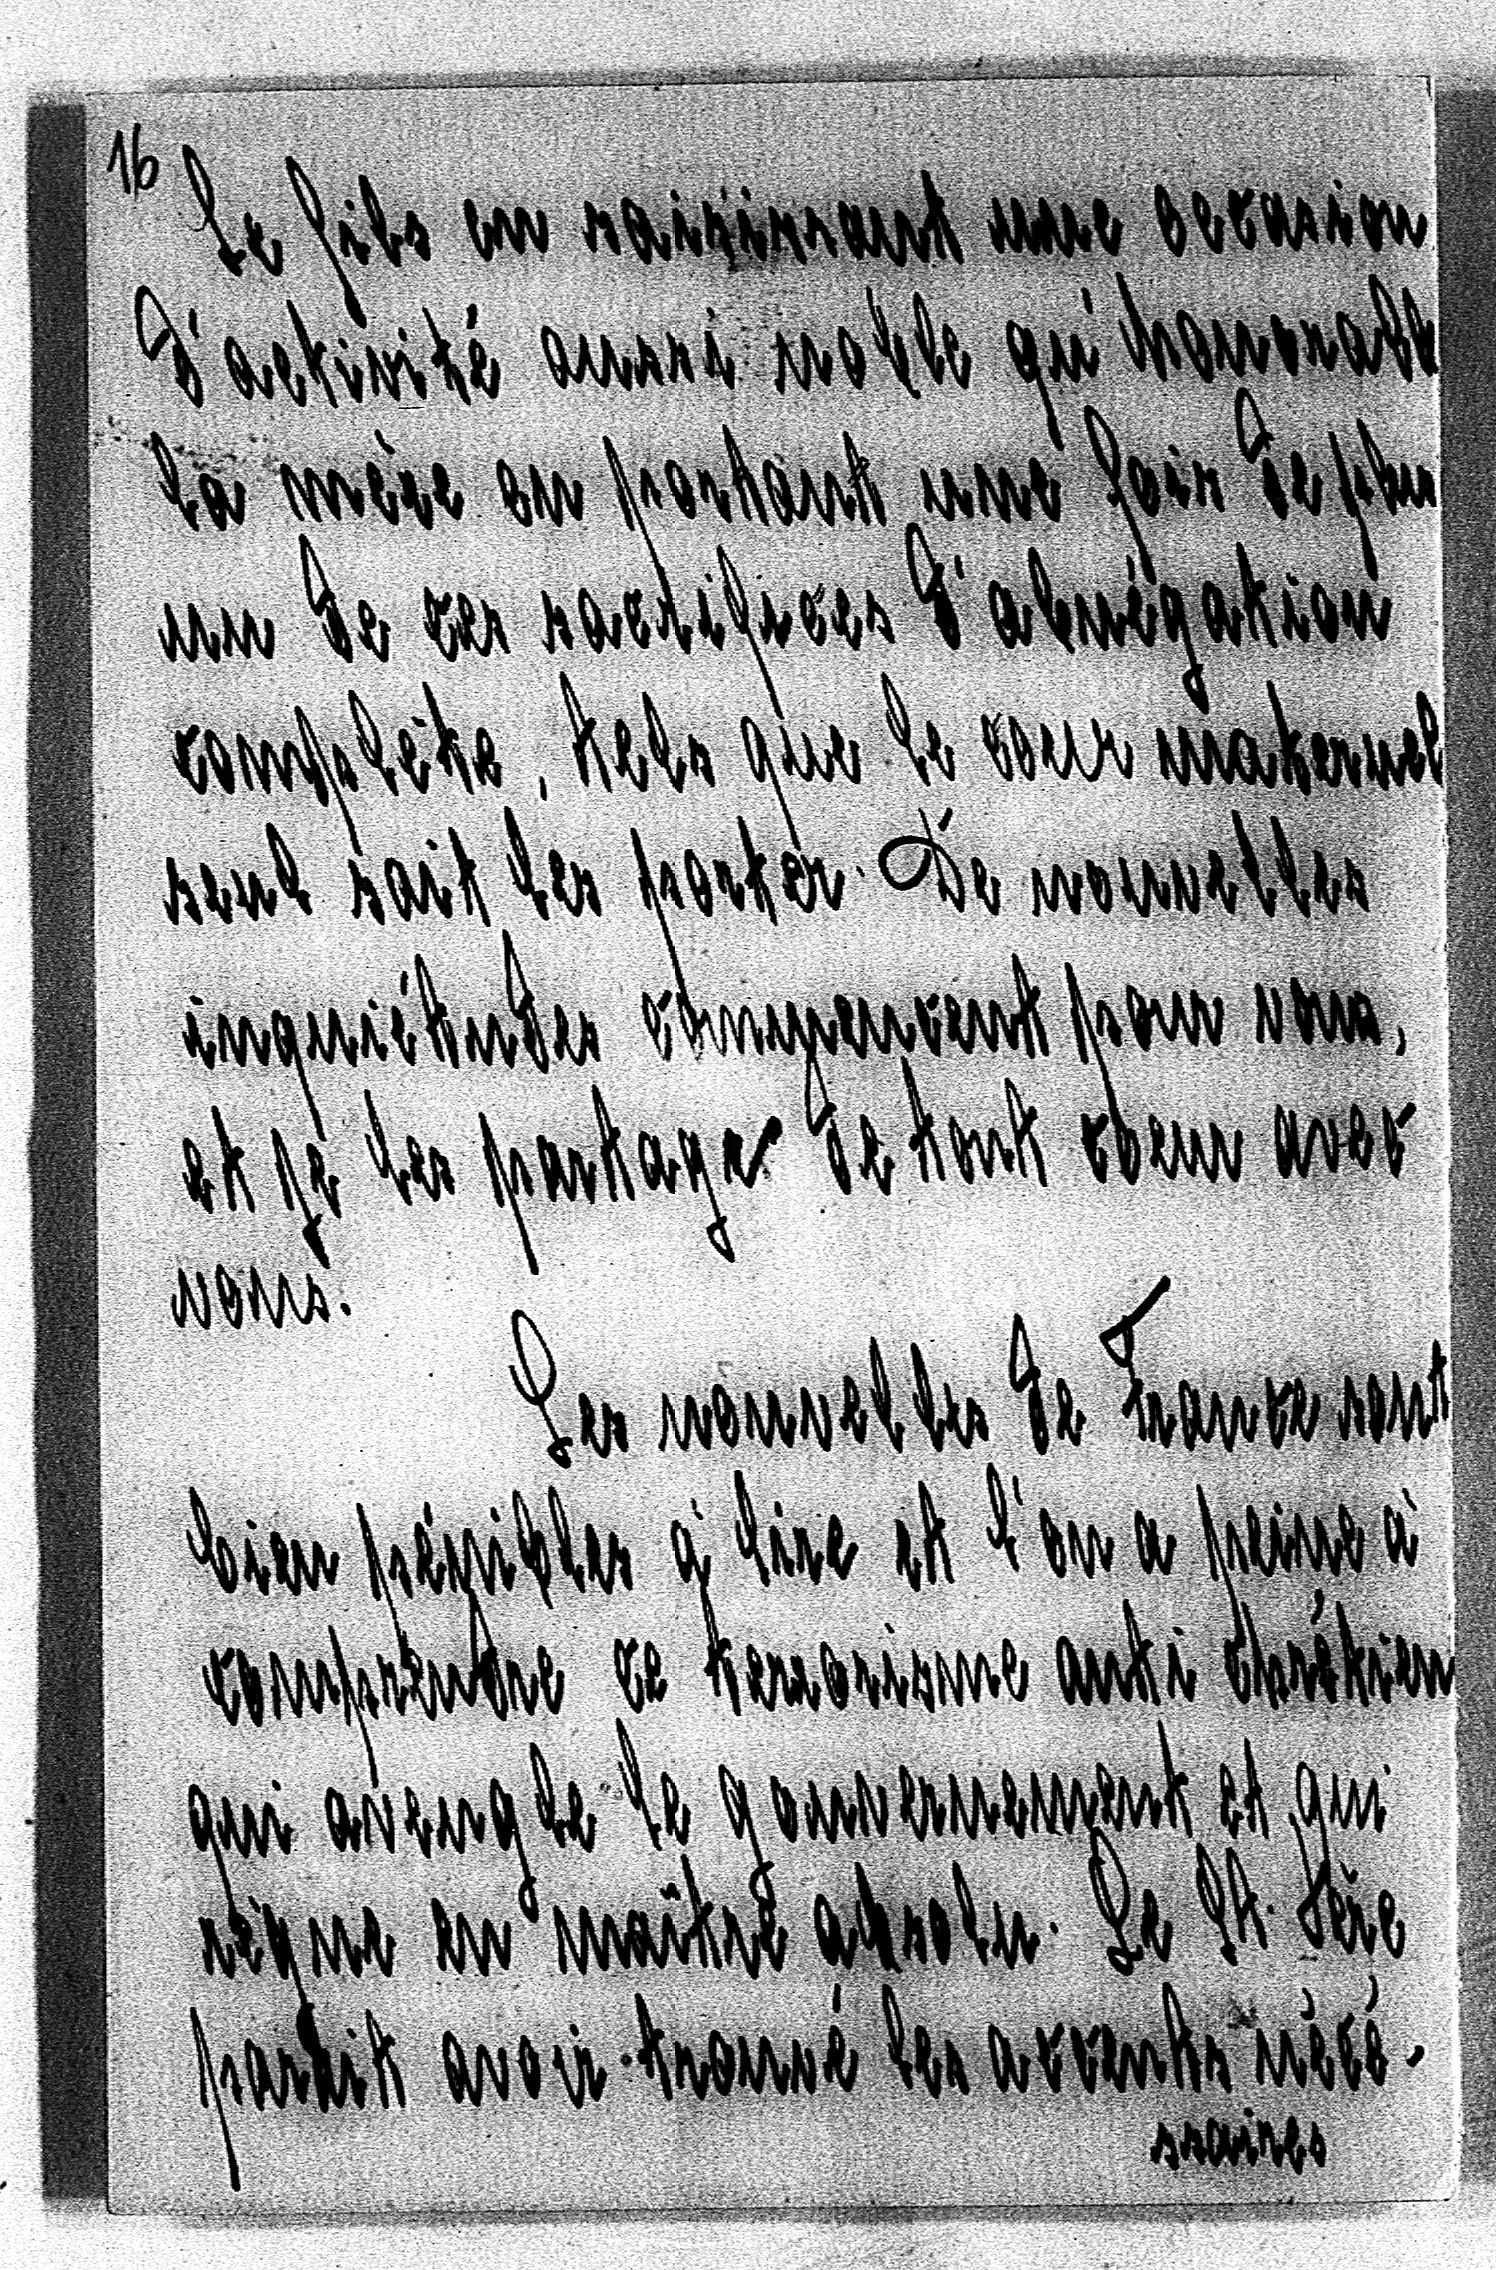 16
Le fils en saisissant une occasion
d'activité aussi noble qu'honorable
la mère en portant une fois de plus
un de ces sacrifices d'abnégation
complète, tels que le cœur maternel
seul sait les porter. De nouvelles
inquiétudes commencent pour vous,
et je les partage de tout cœur avec
vous.
Les nouvelles de France sont
bien pénibles à lire et l'on a peine à
comprendre ce terrorisme anti chrétien
qui aveugle le gouvernement et qui
règne en maître absolu. Le St. Père
parait avoir trouvé les accents néce-
ssaires